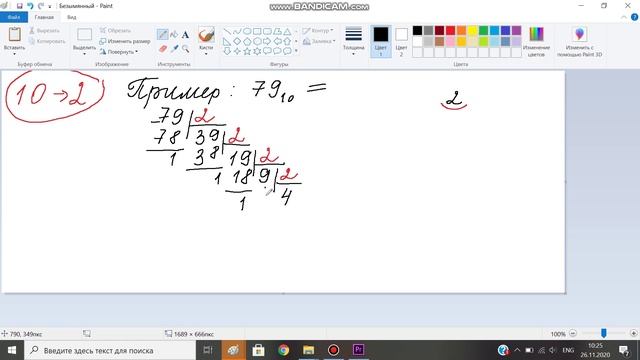 www.BANDICAM.com
Безымянный - Paint
Файл Главная Вид
Вставить Вырезать Копировать
Выделить Обрезать Изменить размер Повернуть
Кисти
Контур Заливка
Толщина Цвет 1 Цвет 2 Изменение цветов Изменить с помощью Paint 3D
Буфер обмена Изображение Инструменты Фигуры Цвета
10→2 Пример: 79₁₀ =
2
79 2
78 39 2
1 38 19 2
1 18 9 2
1 4
790, 349пкс 1689 × 666пкс 100%
Введите здесь текст для поиска
ENG 10:25
26.11.2020